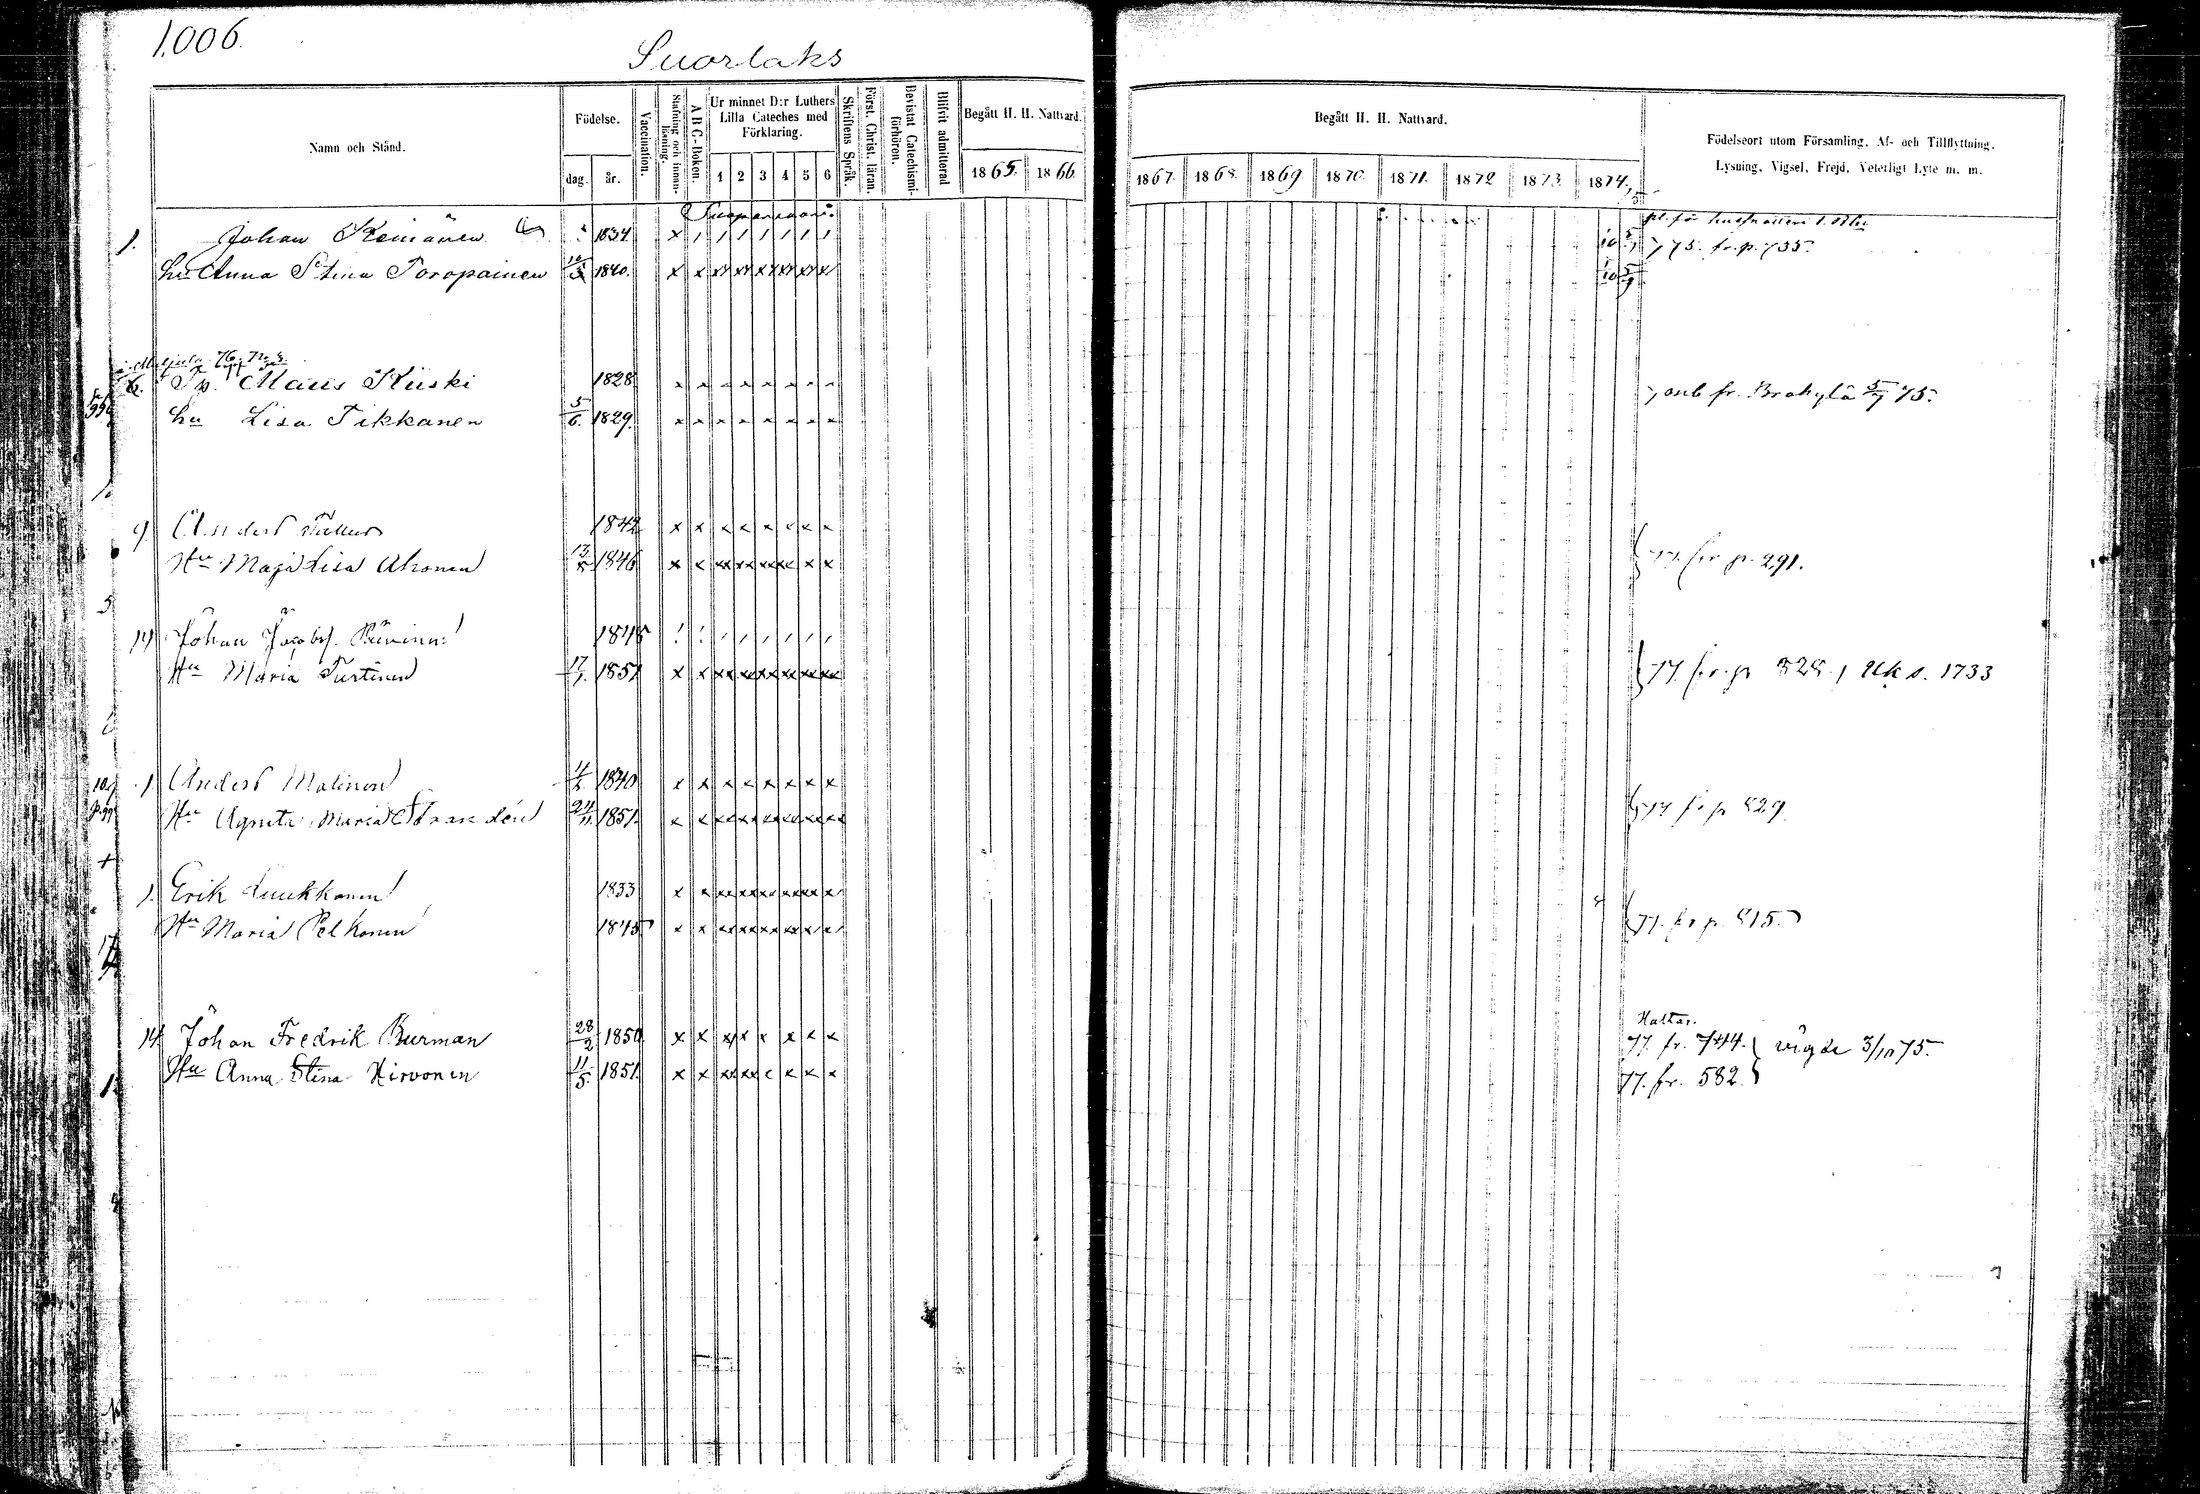 1006.
Suorlaks
Namn och Stånd.
Födelse.
dag. år.
Vaccination.
Stafning och innanläsning.
A B C-Boken.
Ur minnet D:r Luthers Lilla Cateches med Förklaring.
1 2 3 4 5 6
Skriftens Språk.
Först. Christ. läran.
Bevistat Catechismiförhören.
Blifvit admitterad
Begått H. H. Nattvard.
1865. 1866.
Begått H. H. Nattvard.
1867. 1868. 1869. 1870. 1871. 1872 1873. 1874.
Födelseort utom Församling, Af- och Tillflyttning,
Lysning, Vigsel, Frejd, Veterligt Lyte m. m.
1. Johan Keinänen 1834
75. fr. p. 735.
hu Anna Stina Toropainen 1840.
6. Maus Kiiski 1828
fr. Brahylä 5/7 75.
hu Lisa Tikkanen 5/6. 1829.
9 Anders 1842
Hu Maja Lisa Ahonen 13 1846
77. fr p. 291.
14 Johan Jacobs. 1848
Hu Maria Turtinen 17/1. 1851
77. fr. p 828.
s. 1733
1 Anders Matinen 1840
Hu Agneta Maria Strandén 24/11. 1851.
77 fr p 829.
1. Erik Luukkonen 1833
Hu Maria Pelkonen 1845
77. fr p. 815.
Haltar.
14. Johan Fredrik Burman 28/2 1850.
77. fr. 744. vigde 3/10 75.
Hu Anna Stina Hirvonen 11/5. 1851.
77. fr. 582.